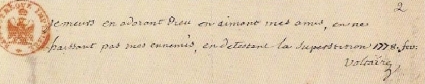 2
je meurs en adorant Dieu en aimant mes amis, en ne
haissant pas mes ennemis, en detestant la superstition 1778. fev.
Voltaire